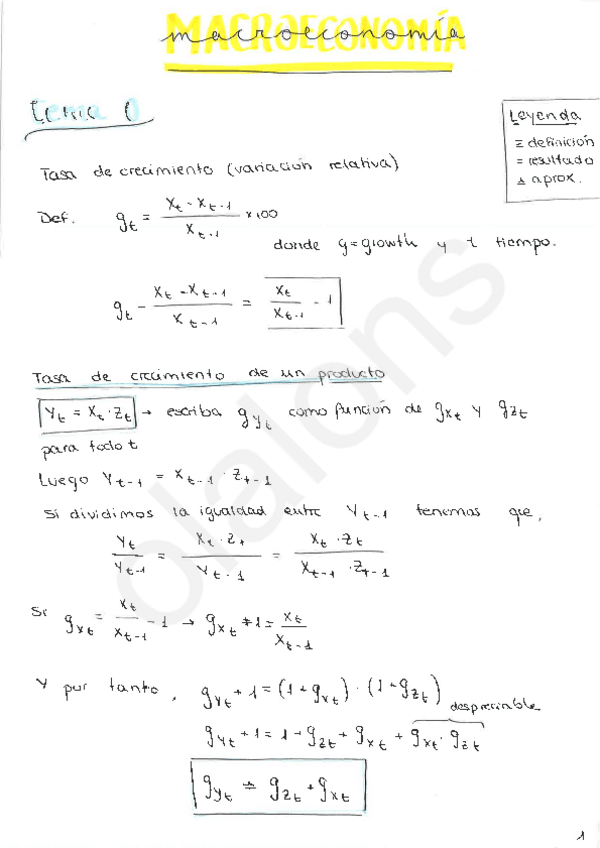 MACROECONOMÍA
macroeconomía
tema 0
Leyenda
≡ definición
= resultado
≙ aprox.
Tasa de crecimiento (variación relativa)
Def. g_t = (X_t - X_t-1) / X_t-1 × 100
donde g=growth y t tiempo.
g_t - (X_t - X_t-1) / X_t-1 = X_t / X_t-1 - 1
Tasa de crecimiento de un producto
Y_t = X_t · Z_t → escriba g_Yt como función de g_Xt y g_Zt
para todo t
Luego Y_t-1 = X_t-1 · Z_t-1
Si dividimos la igualdad entre Y_t-1 tenemos que,
Y_t / Y_t-1 = X_t · Z_t / Y_t-1 = X_t · Z_t / X_t-1 · Z_t-1
Si g_Xt = X_t / X_t-1 - 1 → g_Xt + 1 = X_t / X_t-1
Y por tanto, g_Yt + 1 = (1 + g_Xt) · (1 + g_Zt)
despreciable
g_Yt + 1 = 1 + g_Zt + g_Xt + g_Xt · g_Zt
g_Yt ≙ g_Zt + g_Xt
1
olalons